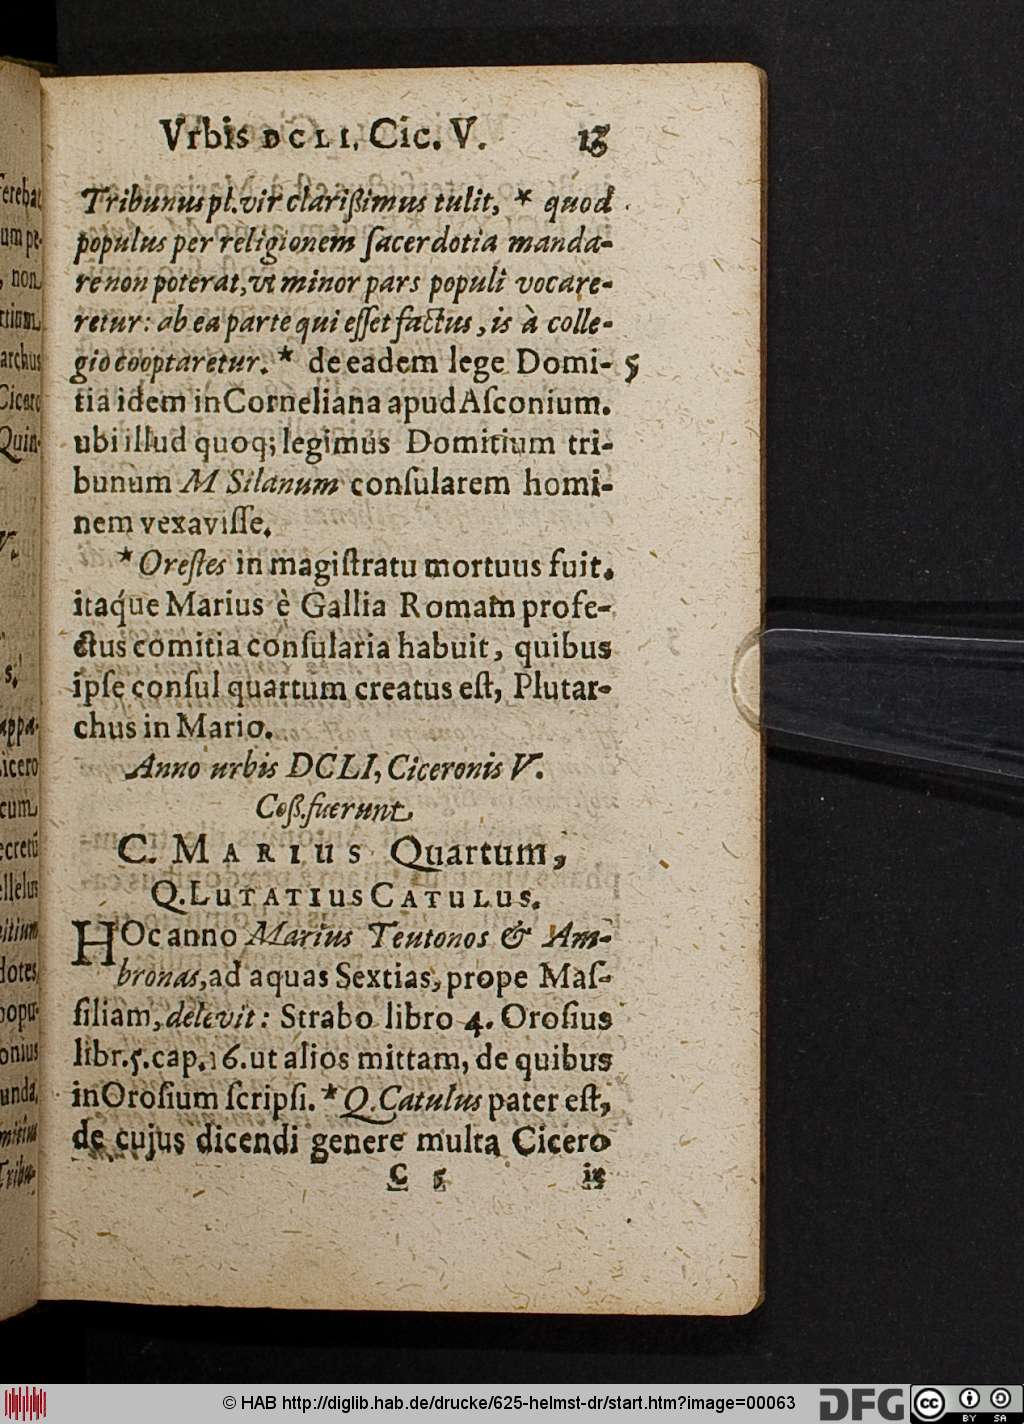 Vrbis DCLI. Cic. V. 13
Tribunus pl. vir clarißimus tulit, * quod
populus per religionem ſacerdotia manda-
re non poterat, vt minor pars populi vocare-
retur: ab ea parte qui eſſet factus, is à colle-
gio cooptaretur. * de eadem lege Domi- 5
tia idem in Corneliana apud Aſconium.
ubi illud quoq; legimus Domitium tri-
bunum M Silanum conſularem homi-
nem vexaviſſe.
* Oreſtes in magiſtratu mortuus fuit.
itaque Marius è Gallia Romam profe-
ctus comitia conſularia habuit, quibus
ipſe conſul quartum creatus eſt, Plutar-
chus in Mario.
Anno urbis DCLI, Ciceronis V.
Coß. fuerunt
C. MARIUS Quartum,
Q. LUTATIUS CATULUS.
HOc anno Marius Teutonos & Am-
bronas, ad aquas Sextias, prope Maſ-
ſiliam, delevit: Strabo libro 4. Oroſius
libr. 5. cap. 16. ut alios mittam, de quibus
in Oroſium ſcripſi. * Q. Catulus pater eſt,
de cujus dicendi genere multa Cicero
C 5 is
ferebat
um pe-
, non
archus
Cicero
Quin-
V.
s.
appa-
icero
cum
ecretū
ellelus
itium
dotes,
popu-
onius
unda,
mitiu
Tribu-
© HAB http://diglib.hab.de/drucke/625-helmst-dr/start.htm?image=00063
DFG
cc
BY SA